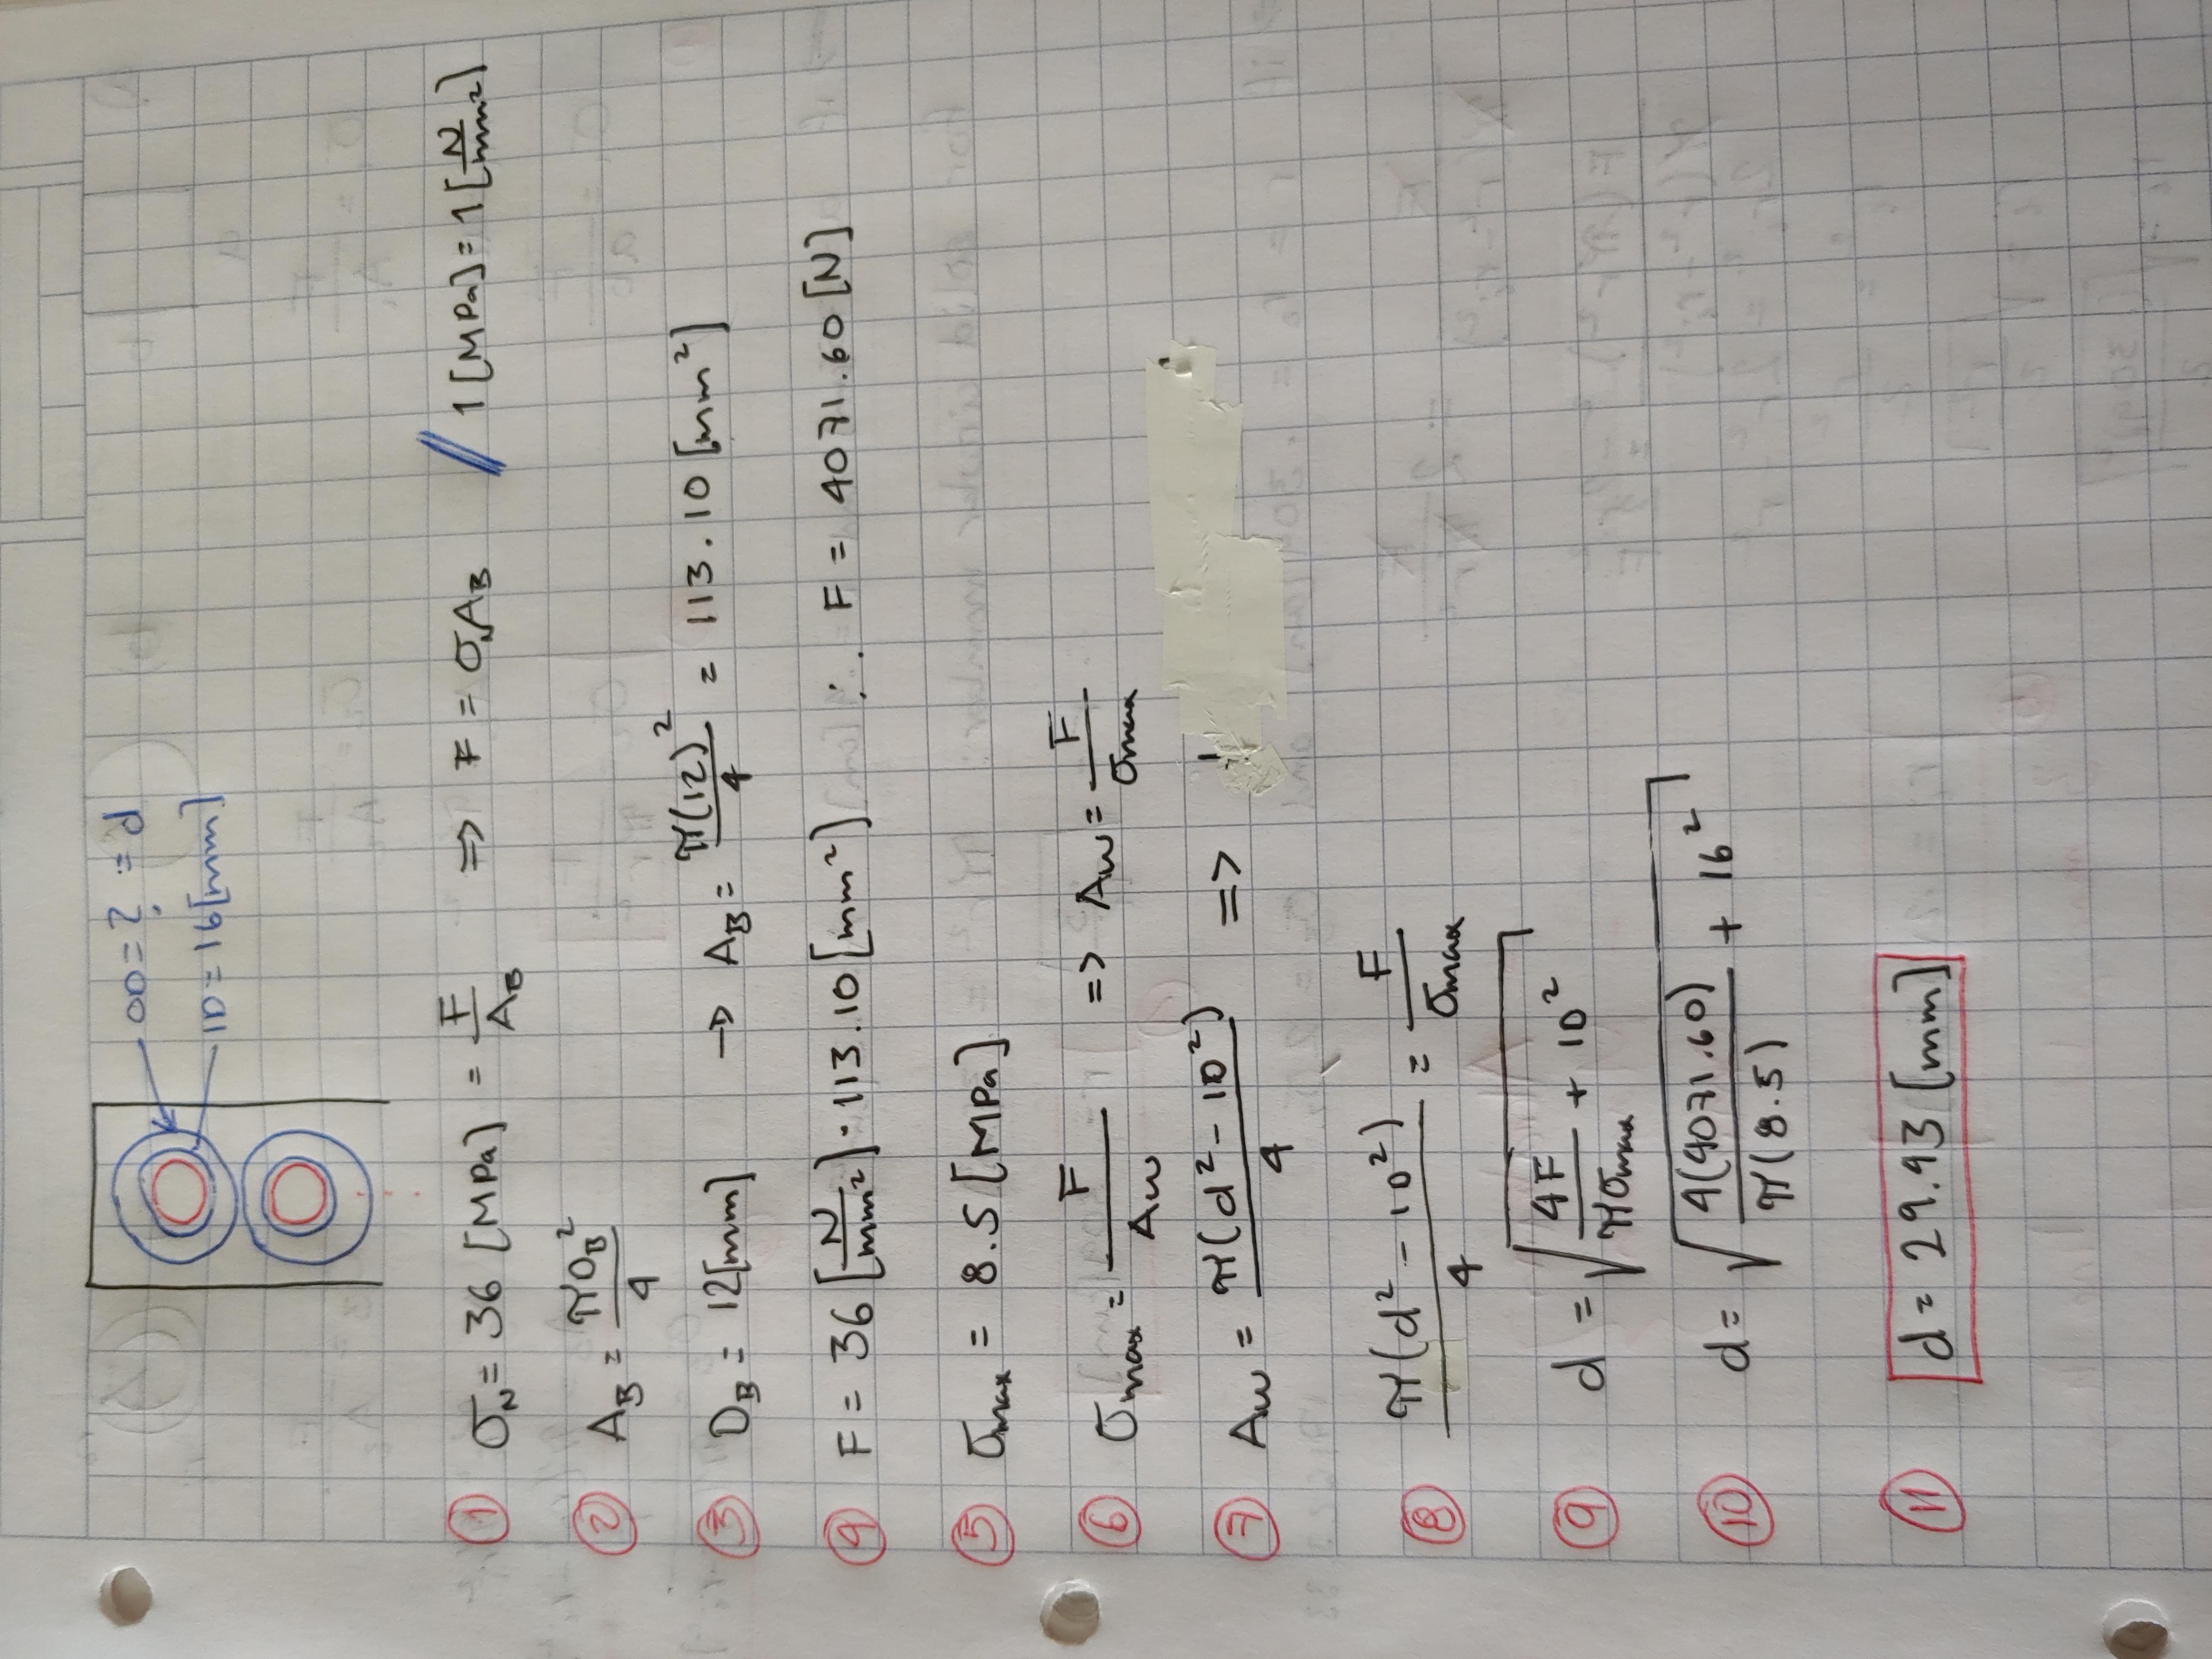 OD = ? = d
ID = 16 [mm]
① σN = 36 [MPa] = F/AB => F = σN AB // 1 [MPa] = 1 [N/mm²]
② AB = πDB²/4
③ DB = 12 [mm] → AB = π(12)²/4 = 113.10 [mm²]
④ F = 36 [N/mm²] · 113.10 [mm²] ∴ F = 4071.60 [N]
⑤ σmax = 8.5 [MPa]
⑥ σmax = F/Aw => Aw = F/σmax
⑦ Aw = π(d² - 10²)/4 =>
⑧ π(d² - 10²)/4 = F/σmax
⑨ d = √(4F/πσmax + 10²)
⑩ d = √(4(4071.60)/π(8.5) + 16²)
⑪ d = 29.43 [mm]